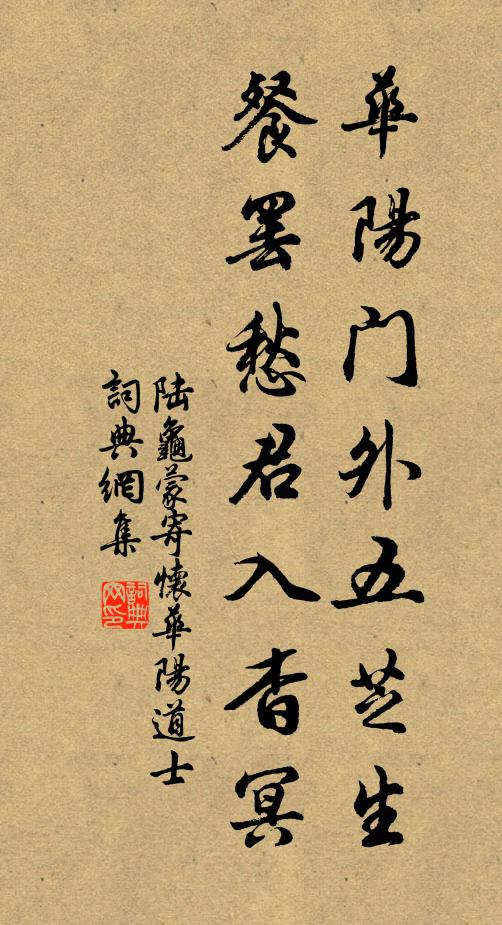 華陽門外五芝生
餐罷愁君入杳冥
陸龜蒙寄懷華陽道士
詞典網集
詞典网印